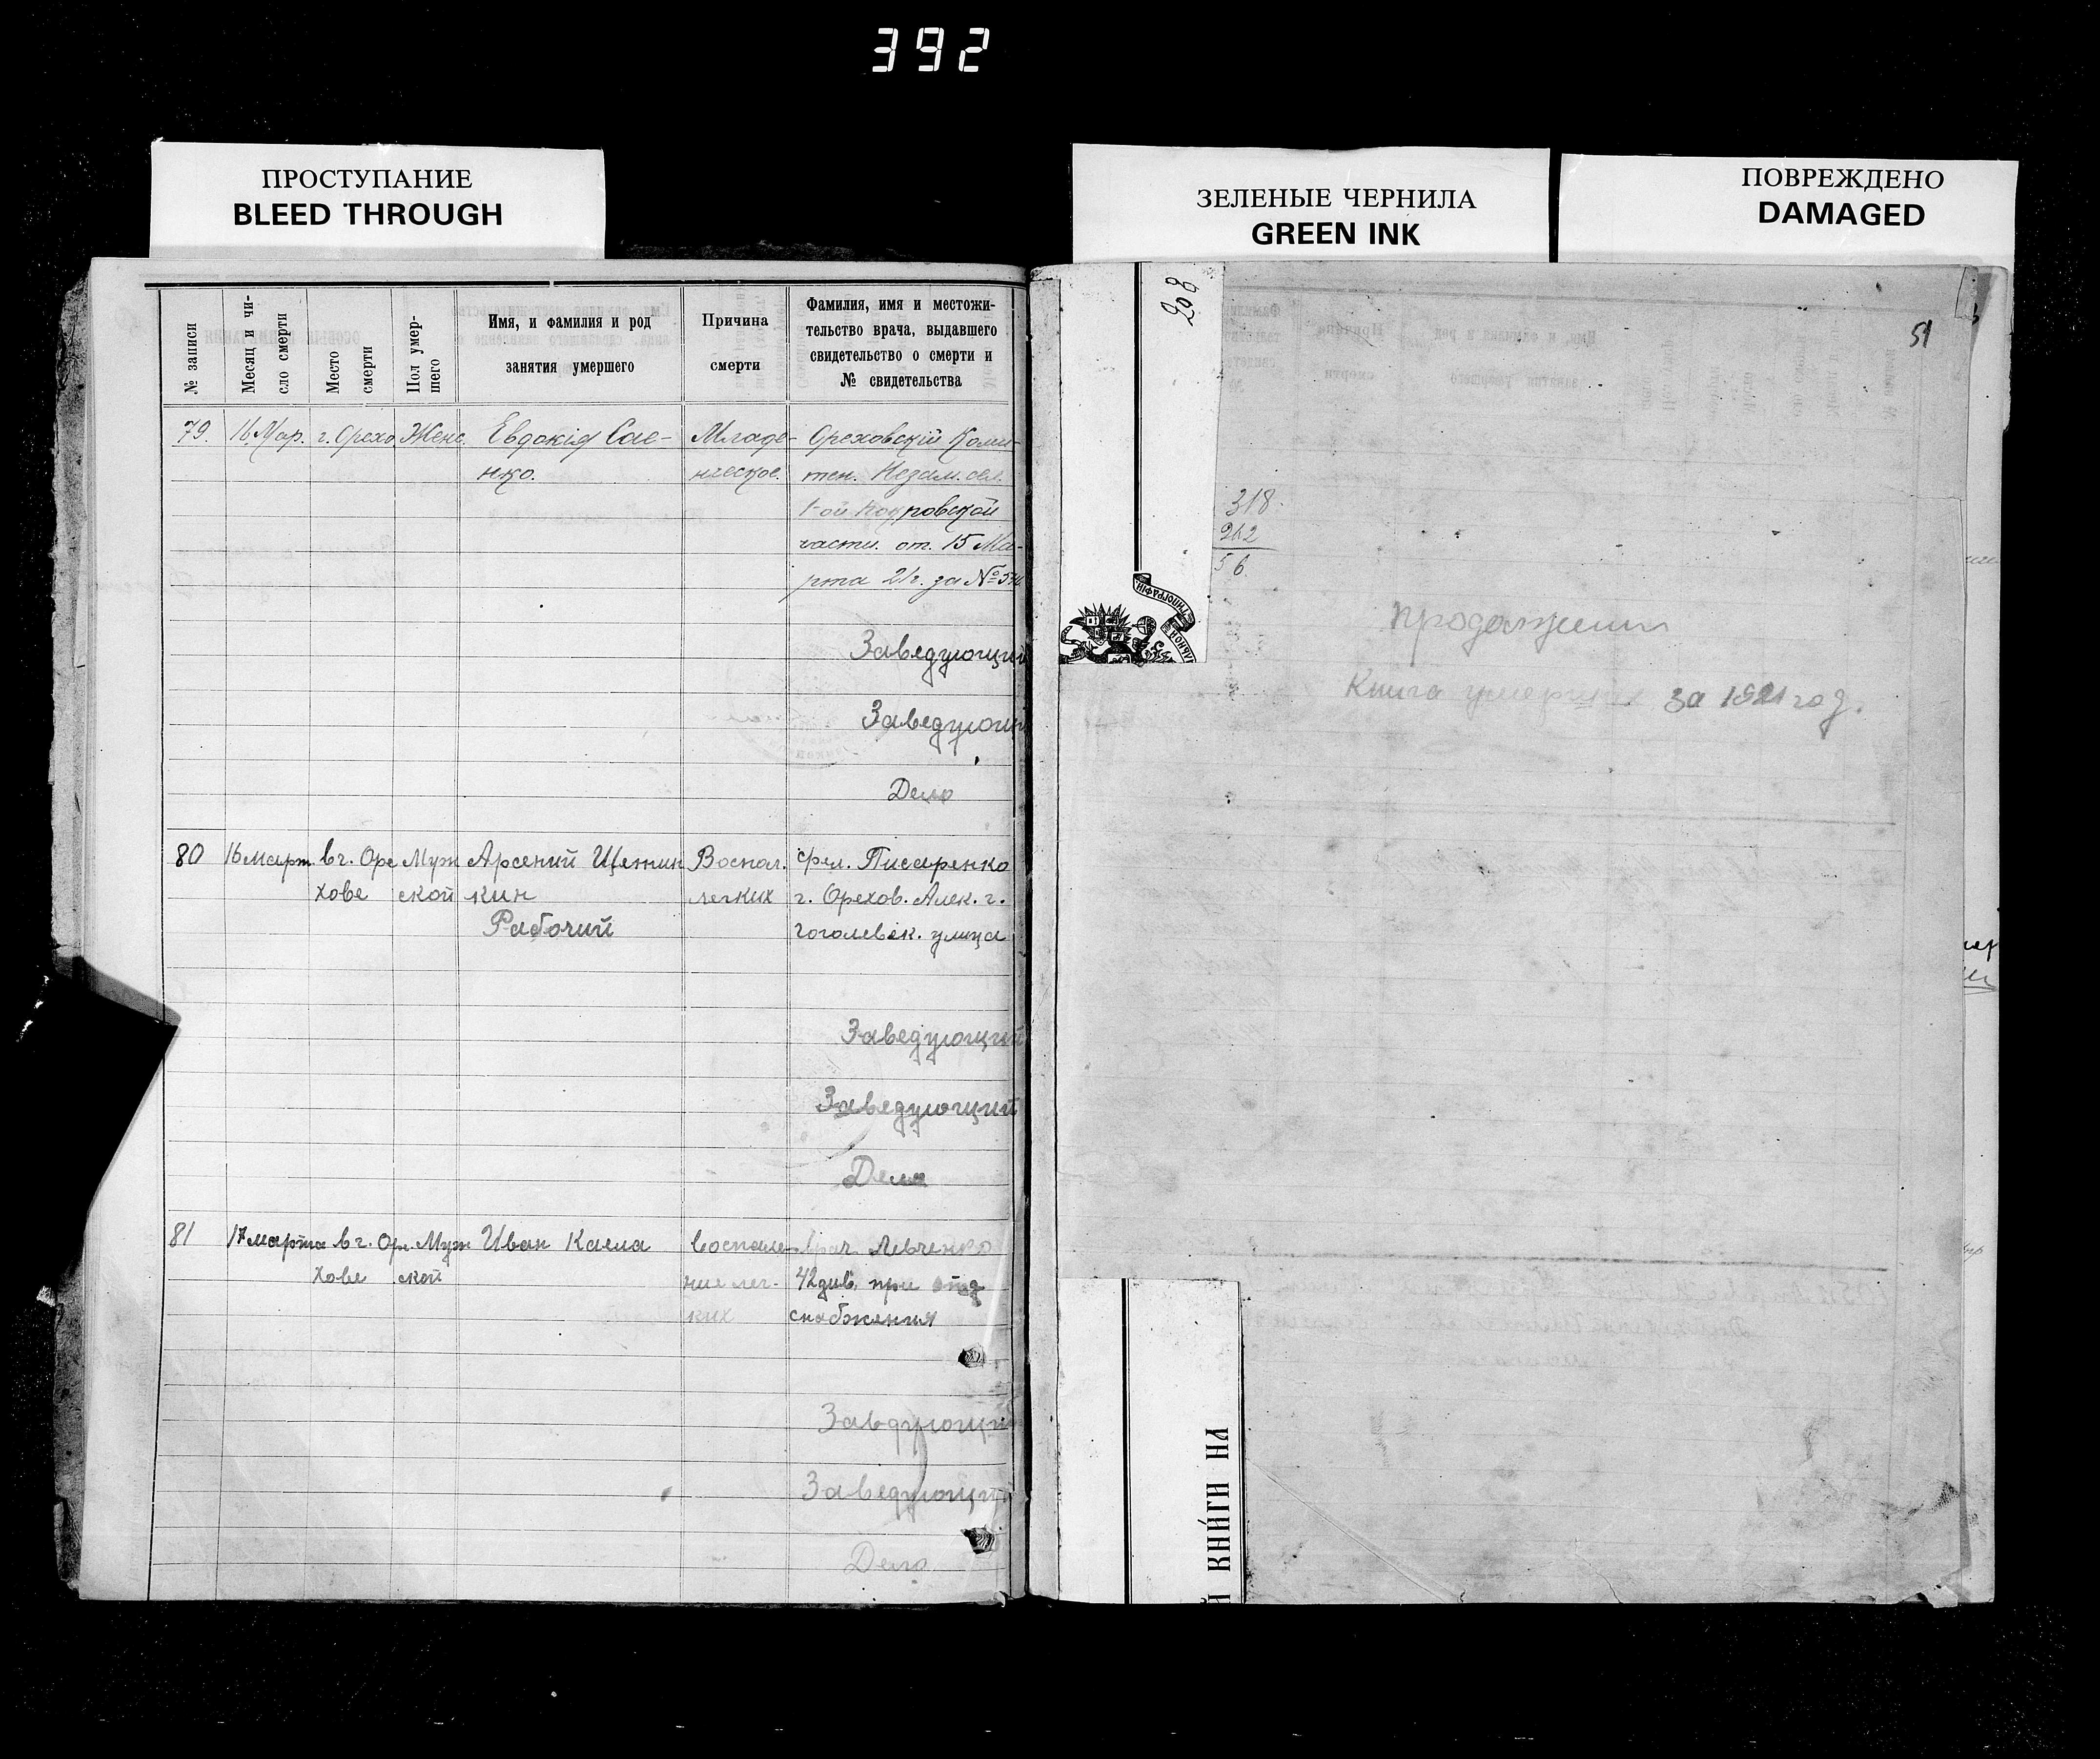 392
ПРОСТУПАНИЕ
BLEED THROUGH
ЗЕЛЕНЫЕ ЧЕРНИЛА
GREEN INK
ПОВРЕЖДЕНО
DAMAGED
№ записи
Месяц и чи-
сло смерти
Место
смерти
Пол умер-
шего
Имя, и фамилия и род
занятия умершего
Причина
смерти
Фамилия, имя и местожи-
тельство врача, выдавшего
свидетельство о смерти и
№ свидетельства
79. 16 Мар. г. Орехо Женс. Евдокія Сае- Младе- Ореховскій Коми-
нко. нческое. тен. Незам. сел.
1-ой Покровской
части. от. 15 Ма-
рта 21г. за №
Заведующий
Заведующи
Дело
80 16 март. в г. Оре Муж Арсений Щетин Воспал. фел. Писаренко
хове ской кин легких г. Орехов. Алек. г.
Рабочий гоголевск. улица
Заведующий
Заведующий
Дела
81 17 марта в г. Оре Муж Иван Каела воспале- врач Левченко
хове ской ние лег- 42 див. при отд
ких снабжения
Заведующий
Заведующий
Дело
208
51
318.
262
56
ТИПОГРАФІИ
продолжении
Книга умерших за 1921 год.
КНИГИ НА